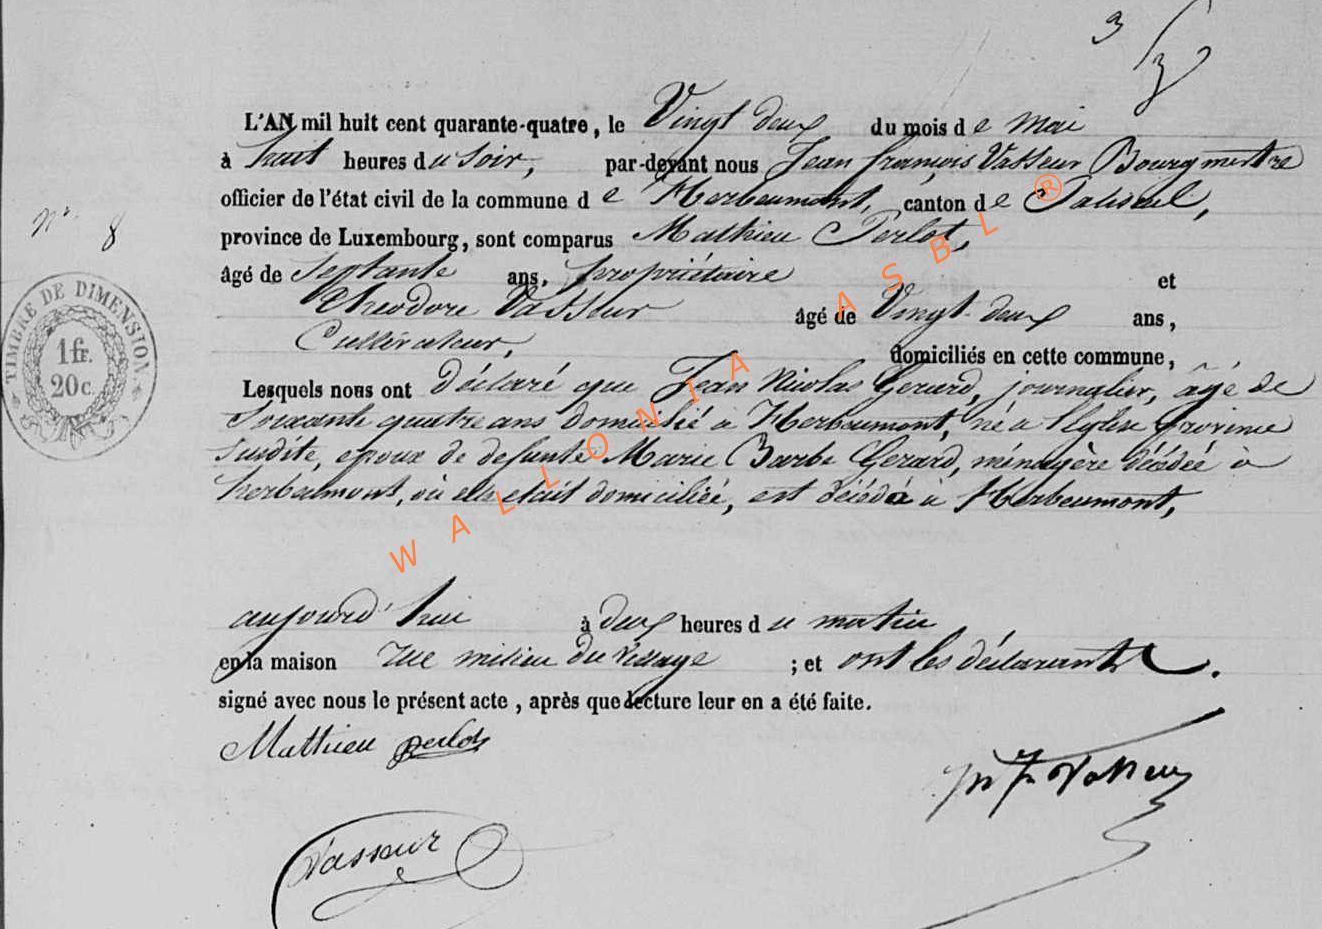 3
3
L'AN mil huit cent quarante-quatre, le Vingt deux du mois de Mai
à huit heures du soir, par-devant nous Jean françois Vasseur Bourgmestre
officier de l'état civil de la commune de Herbeumont, canton de Paliseul,
N° 8
province de Luxembourg, sont comparus Mathieu Perlot,
âgé de Septante ans, propriétaire et
Théodore Vasseur âgé de Vingt deux ans,
Cultivateur, domiciliés en cette commune,
Lesquels nous ont déclaré que Jean Nicolas Gerard, journalier, âgé de
Soixante quatre ans domicilié à Herbeumont, né à l'Eglise province
susdite, epoux de defunte Marie Barbe Gerard, ménagère décédée à
herbeumont, où elle etait domiciliée, est décédé à Herbeumont,
aujourd'hui à deux heures du matin
en la maison rue milieu du village ; et ont les déclarants
signé avec nous le présent acte, après que lecture leur en a été faite.
Mathieu perlot
J f Vasseur
Vasseur
TIMBRE DE DIMENSION
1 fr.
20 c.
WALLONIA ASBL ®